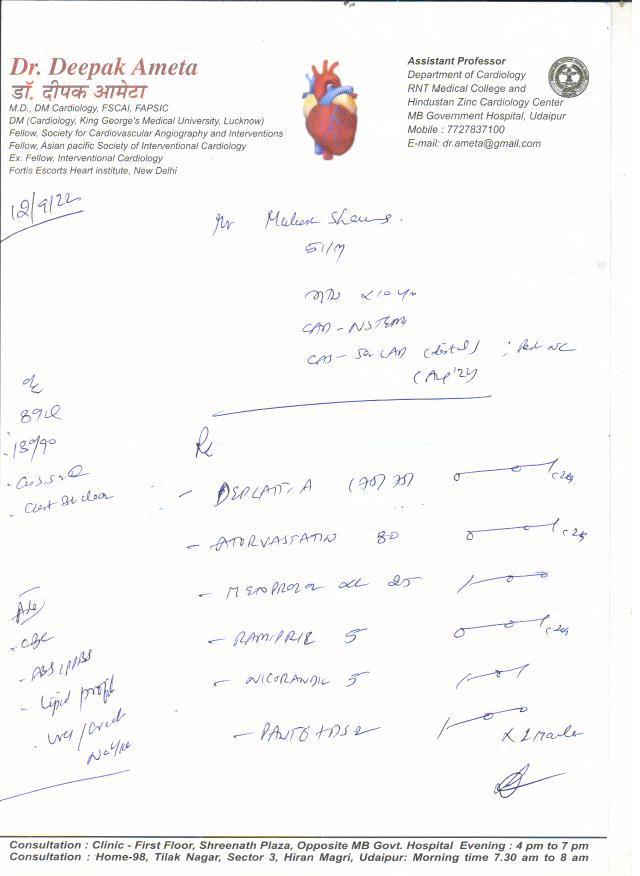 Dr. Deepak Ameta
डॉ. दीपक आमेटा
M.D., DM Cardiology, FSCAI, FAPSIC
DM (Cardiology, King George's Medical University, Lucknow)
Fellow, Society for Cardiovascular Angiography and Interventions
Fellow, Asian pacific Society of Interventional Cardiology
Ex. Fellow, Interventional Cardiology
Fortis Escorts Heart institute, New Delhi
Assistant Professor
Department of Cardiology
RNT Medical College and
Hindustan Zinc Cardiology Center
MB Government Hospital, Udaipur
Mobile : 7727837100
E-mail: dr.ameta@gmail.com
12/9/22
Mr
51/M
CAD - NSTEMI
LAD (distal) ;
o/e
- 130/90
- Chest B/L clear
Rx
- A (75) 75
- ATORVASTATIN 80
- XL 25
- 5
- NICORANDIL 5
- PANTO + DSR
Adv
- CBC
- FBS / PPBS
- Lipid profile
. Urea / Creat
Na+/K+
Consultation : Clinic - First Floor, Shreenath Plaza, Opposite MB Govt. Hospital Evening : 4 pm to 7 pm
Consultation : Home-98, Tilak Nagar, Sector 3, Hiran Magri, Udaipur: Morning time 7.30 am to 8 am